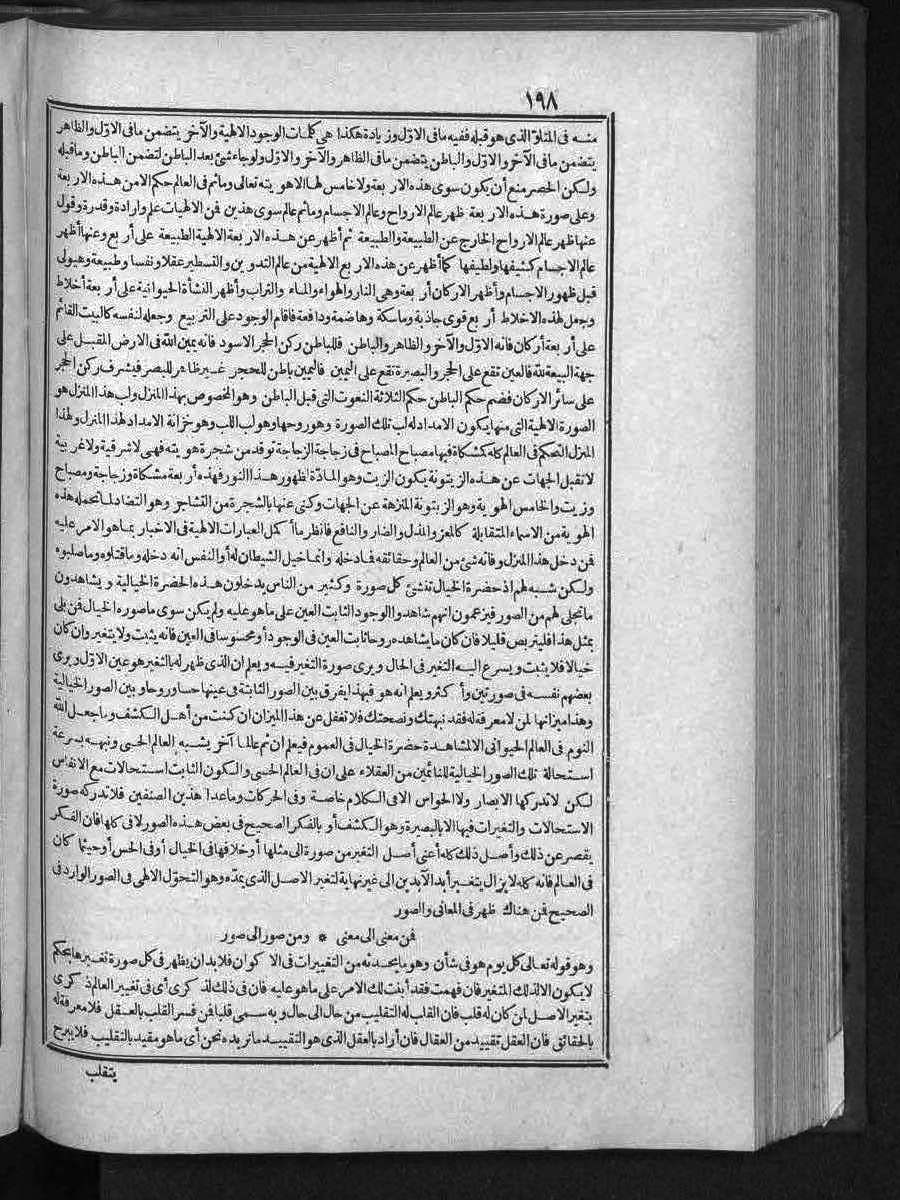 ١٩٨
منه فى المتلو الذى هو قبله ففيه ما فى الاوّل وزيادة هكذا هى كلمات الوجود الالهية والآخر يتضمن ما فى الاوّل والظاهر
يتضمن ما فى الآخر والاوّل والباطن يتضمن ما فى الظاهر والآخر والاوّل ولو جاء شئ بعد الباطن لتضمن الباطن وما قبله
ولكن الحصر منع أن يكون سوى هذه الاربعة ولا خامس لها الا هويته تعالى وما ثم فى العالم حكم الا من هذه الاربعة
وعلى صورة هذه الاربعة ظهر عالم الارواح وعالم الاجسام وما ثم عالم سوى هذين فمن الالهيات علم وارادة وقدرة وقول
عنها ظهر عالم الارواح الخارج عن الطبيعة والطبيعة ثم أظهر عن هذه الاربعة الالهية الطبيعة على أربع وعنها أظهر
عالم الاجسام كثيفها ولطيفها كما أظهر عن هذه الاربع الالهية من عالم التدوين والتسطير عقلا ونفسا وطبيعة وهيولى
قبل ظهور الاجسام وأظهر الاركان أربعة وهى النار والهواء والماء والتراب وأظهر النشأة الحيوانية على أربعة أخلاط
وجعل لهذه الاخلاط أربع قوى جاذبة وماسكة وهاضمة ودافعة فاقام الوجود على التربيع وجعله لنفسه كالبيت القائم
على أربعة أركان فانه الاوّل والآخر والظاهر والباطن فللباطن ركن الحجر الاسود فانه يمين الله فى الارض المقبل على
جهة البيعة لله فالعين تقع على الحجر والبصيرة تقع على اليمين فاليمين باطن للحجر غير ظاهر للبصر فيشرف ركن الحجر
على سائر الاركان فضم حكم الباطن حكم الثلاثة النعوت التى قبل الباطن وهو المخصوص بهذا المنزل ولب هذا المنزل هو
الصورة الالهية التى منها يكون الامداد له لب تلك الصورة وهو روحها وهو لب اللب وهو خزانة الامداد لهذا المنزل ولهذا
المنزل التحكم فى العالم كله كمشكاة فيها مصباح المصباح فى زجاجة الزجاجة توقد من شجرة هويته فهى لا شرقية ولا غربية
لا تقبل الجهات عن هذه الزيتونة يكون الزيت وهو المادّة لظهور هذا النور فهذه أربعة مشكاة وزجاجة ومصباح
وزيت والخامس الهوية وهو الزيتونة المنزهة عن الجهات وكنى عنها بالشجرة من التشاجر وهو التضاد لما تحمله هذه
الهوية من الاسماء المتقابلة كالمعز والمذل والضار والنافع فانظر ما أكمل العبارات الالهية فى الاخبار بما هو الامر عليه
فمن دخل هذا المنزل وفاته شئ من العالم وحقائقه فما دخله وانما خيل الشيطان له أو النفس انه دخله وما قتلوه وما صلبوه
ولكن شبه لهم اذ حضرة الخيال تنشئ كل صورة وكثير من الناس يدخلون هذه الحضرة الخيالية ويشاهدون
ما تجلى لهم من الصور فيزعمون انهم شاهدوا الوجود الثابت العين على ما هو عليه ولم يكن سوى ما صوره الخيال فمن بلى
بمثل هذا فليتربص قليلا فان كان ما يشاهده روحا ثابت العين فى الوجود أو محسوسا فى العين فانه يثبت ولا يتغير وان كان
خيالا فلا يثبت ويسرع اليه التغير فى الحال ويرى صورة التغير فيه ويعلم ان الذى ظهر له بالتغير هو عين الاوّل ويرى
بعضهم نفسه فى صورتين وأكثر ويعلم انه هو فبهذا يفرق بين الصور الثابتة فى عينها حسا وروحا وبين الصور الخيالية
وهذا ميزانها لمن لا معرفة له فقد نبهتك ونصحتك فلا تغفل عن هذا الميزان ان كنت من أهل الكشف وما جعل الله
النوم فى العالم الحيوانى الا لمشاهدة حضرة الخيال فى العموم فيعلم ان ثم عالما آخر يشبه العالم الحسى ونبهه بسرعة
استحالة تلك الصور الخيالية للنائمين من العقلاء على ان فى العالم الحسى والكون الثابت استحالات مع الانفاس
لكن لا تدركها الابصار ولا الحواس الا فى الكلام خاصة وفى الحركات وما عدا هذين الصنفين فلا تدركه صورة
الاستحالات والتغيرات فيها الا بالبصيرة وهو الكشف أو بالفكر الصحيح فى بعض هذه الصور لا فى كلها فان الفكر
يقصر عن ذلك وأصل ذلك كله أعنى أصل التغير من صورة الى مثلها أو خلافها فى الخيال أو فى الحس أو حيثما كان
فى العالم فانه كله لا يزال يتغير أبد الآبدين الى غير نهاية لتغير الاصل الذى يمدّه وهو التحوّل الالهى فى الصور الوارد فى
الصحيح فمن هناك ظهر فى المعانى والصور
فمن معنى الى معنى * ومن صور الى صور
وهو قوله تعالى كل يوم هو فى شأن وهو ما يحدثه من التغييرات فى الاكوان فلا بد ان يظهر فى كل صورة تغيرها بحكم
لا يكون الا لذلك المتغير فان فهمت فقد أبنت لك الامر على ما هو عليه فان فى ذلك لذكرى أى فى تغيير العالم ذكرى
بتغير الاصل لمن كان له قلب فان القلب له التقليب من حال الى حال وبه سمى قلبا فمن فسر القلب بالعقل فلا معرفة له
بالحقائق فان العقل تقييد من العقال فان أراد بالعقل الذى هو التقييد ما نريده نحن أى ما هو مقيد بالتقليب فلا يبرح
يتقلب